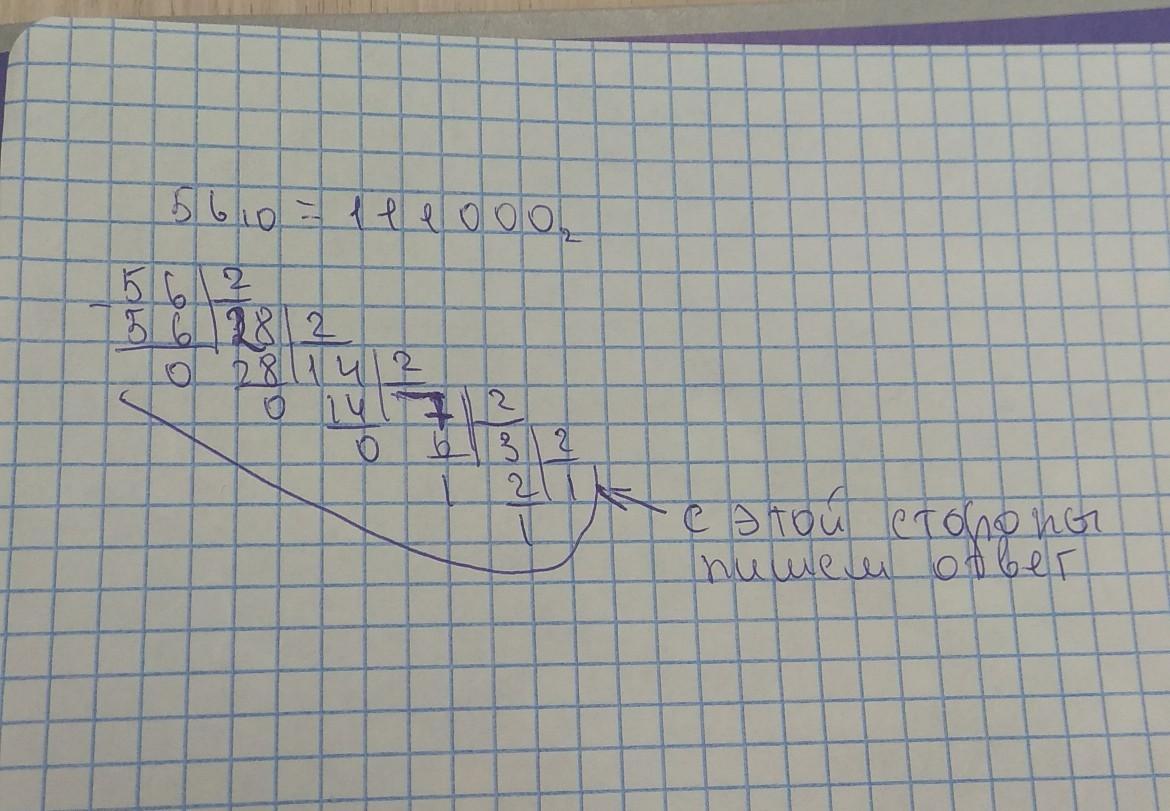 56₁₀ = 111000₂
56 | 2
- 56 | 28 | 2
0 28 | 14 | 2
0 14 | 7 | 2
0 6 | 3 | 2
1 2 | 1
1
с этой стороны
пишем ответ